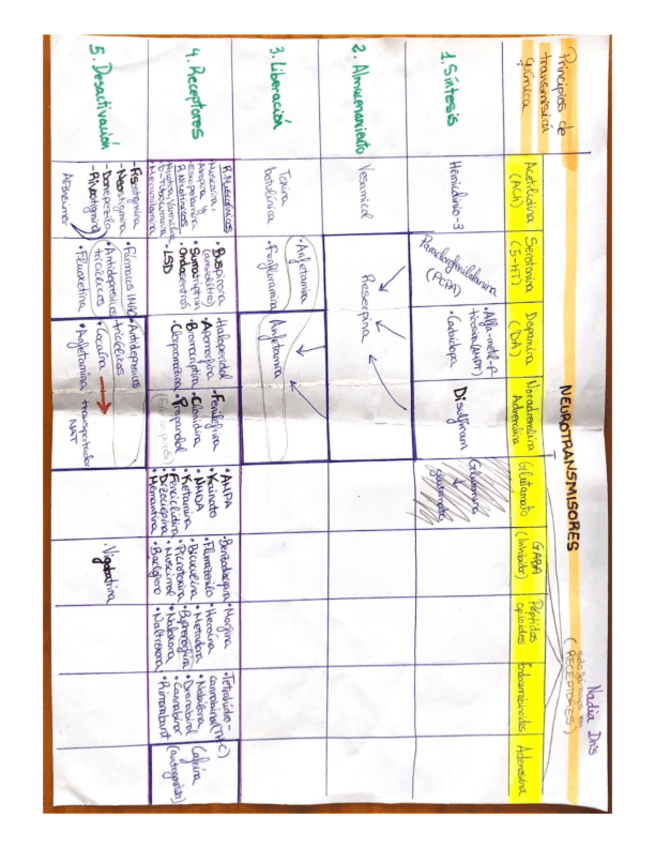 Nadia Inis
NEUROTRANSMISORES
(solo fármacos en
RECEPTORES)
Principios de
transmisión
química
Acetilcolina
(ACh)
Serotonina
(5-HT)
Dopamina
(DA)
Noradrenalina
Adrenalina
Glutamato
GABA
(Inhibidor)
Péptidos
opioides
Endocannabinoides
Adenosina
1. Síntesis
Hemicolinio-3
Paraclorofenilalanina
(PCPA)
•Alfa-metil-p-
tirosina (AMPT)
•Carbidopa
Disulfiram
Glutamina
↓
glutamato
2. Almacenamiento
Vesamicol
Reserpina
3. Liberación
Toxina
botulínica
•Anfetamina
•Fenfluramina
Anfetamina
4. Receptores
R. Muscarínicos
Muscarina,
Atropina y
Escopolamina
R. Nicotínicos
Nicotina, Vareniclina
D-Tubocurarina
Mecamilamina
•Buspirona
(ansiolítico)
•Sumatriptán
•Ondansetrón
•LSD
•Haloperidol
•Apomorfina
•Bromocriptina
•Clorpromazina
•Fenilefrina
•Clonidina
•Propranolol
•AMPA
•Kainato
•NMDA
•Ketamina
•Fenciclidina
•Dizocilpina
•Memantina
•Benzodiacepina
•Flumazenilo
•Bicuculina
•Picrotoxina
•Muscimol
•Baclofeno
•Morfina
•Heroína
•Metadona
•Buprenorfina
•Naloxona
•Naltrexona
•Tetrahidro-
cannabinol (THC)
•Nabilona
•Dronabinol
•Cannabinol
•Rimonabant
Cafeína
(antagonista)
5. Desactivación
-Fisostigmina
-Neostigmina
-Donepezilo
-Rivastigmina
Alzheimer
•Fármacos IMAO
•Antidepresivos
tricíclicos
•Fluoxetina
•Antidepresivos
tricíclicos
•Cocaína
•Anfetamina
transportador
NAT
•Vigabatrina